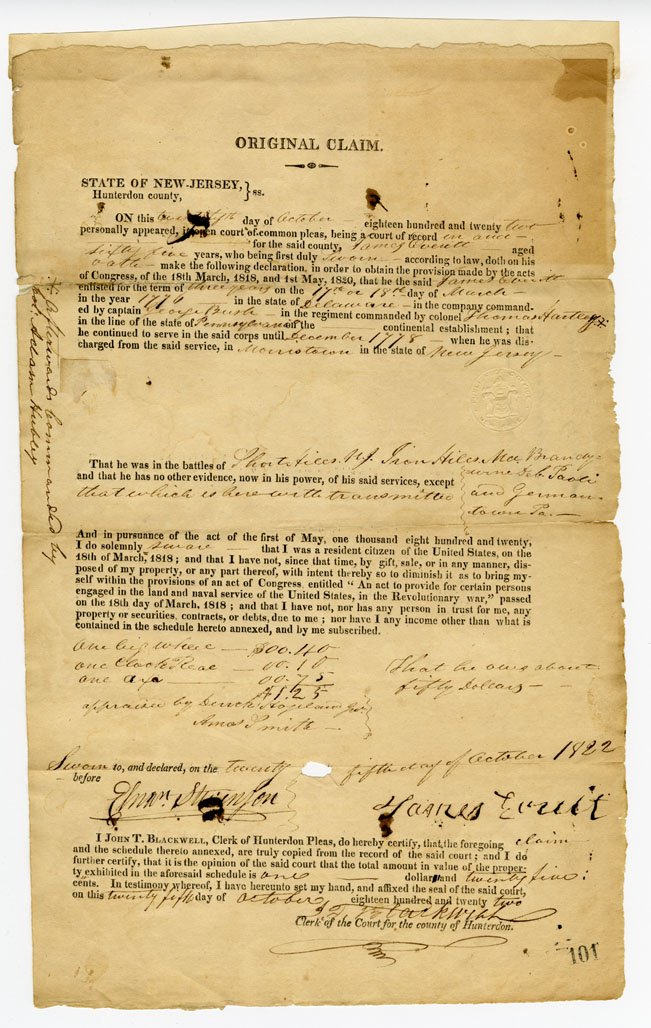 ORIGINAL CLAIM.
STATE OF NEW-JERSEY,
Hunterdon county, }ss.
ON this day of October eighteen hundred and twenty two
personally appeared, in open court of common pleas, being a court of record in and
for the said county, James Everitt aged
sixty five years, who being first duly sworn according to law, doth on his
oath make the following declaration, in order to obtain the provision made by the acts
of Congress, of the 18th March, 1818, and 1st May, 1820, that he the said James Everitt
enlisted for the term of three years on the 17th or 18th day of March
in the year 1776 in the state of Delaware in the company command-
ed by captain George Bush in the regiment commanded by colonel Thomas Hartley
in the line of the state of Pennsylvania on the continental establishment; that
he continued to serve in the said corps until December 1778 when he was dis-
charged from the said service, in Morristown in the state of New Jersey
afterwards Commanded by
Col. Adam Hubley
That he was in the battles of Short Hiles NJ. Iron Hiles Brandy-
wine Paoli
and that he has no other evidence, now in his power, of his said services, except
that which is here with transmitted
and German-
town Pa.
And in pursuance of the act of the first of May, one thousand eight hundred and twenty,
I do solemnly sware that I was a resident citizen of the United States, on the
18th of March, 1818; and that I have not, since that time, by gift, sale, or in any manner, dis-
posed of my property, or any part thereof, with intent thereby so to diminish it as to bring my-
self within the provisions of an act of Congress, entitled "An act to provide for certain persons
engaged in the land and naval service of the United States, in the Revolutionary war," passed
on the 18th day of March, 1818; and that I have not, nor has any person in trust for me, any
property or securities, contracts, or debts, due to me; nor have I any income other than what is
contained in the schedule hereto annexed, and by me subscribed.
one big wheel $00.40
one Clock Reae 00.10
one axe 00.75
$1.25
That he owes about
fifty Dollars
appraised by
Amos Smith
Sworn to, and declared, on the twenty fifth day of October 1822
before
Stevenson
James Everit
I JOHN T. BLACKWELL, Clerk of Hunterdon Pleas, do hereby certify, that the foregoing claim
and the schedule thereto annexed, are truly copied from the record of the said court; and I do
further certify, that it is the opinion of the said court that the total amount in value of the proper-
ty exhibited in the aforesaid schedule is one dollar and twenty five
cents. In testimony whereof, I have hereunto set my hand, and affixed the seal of the said court,
on this twenty fifth day of October eighteen hundred and twenty two
Blackwell
Clerk of the Court for the county of Hunterdon.
101